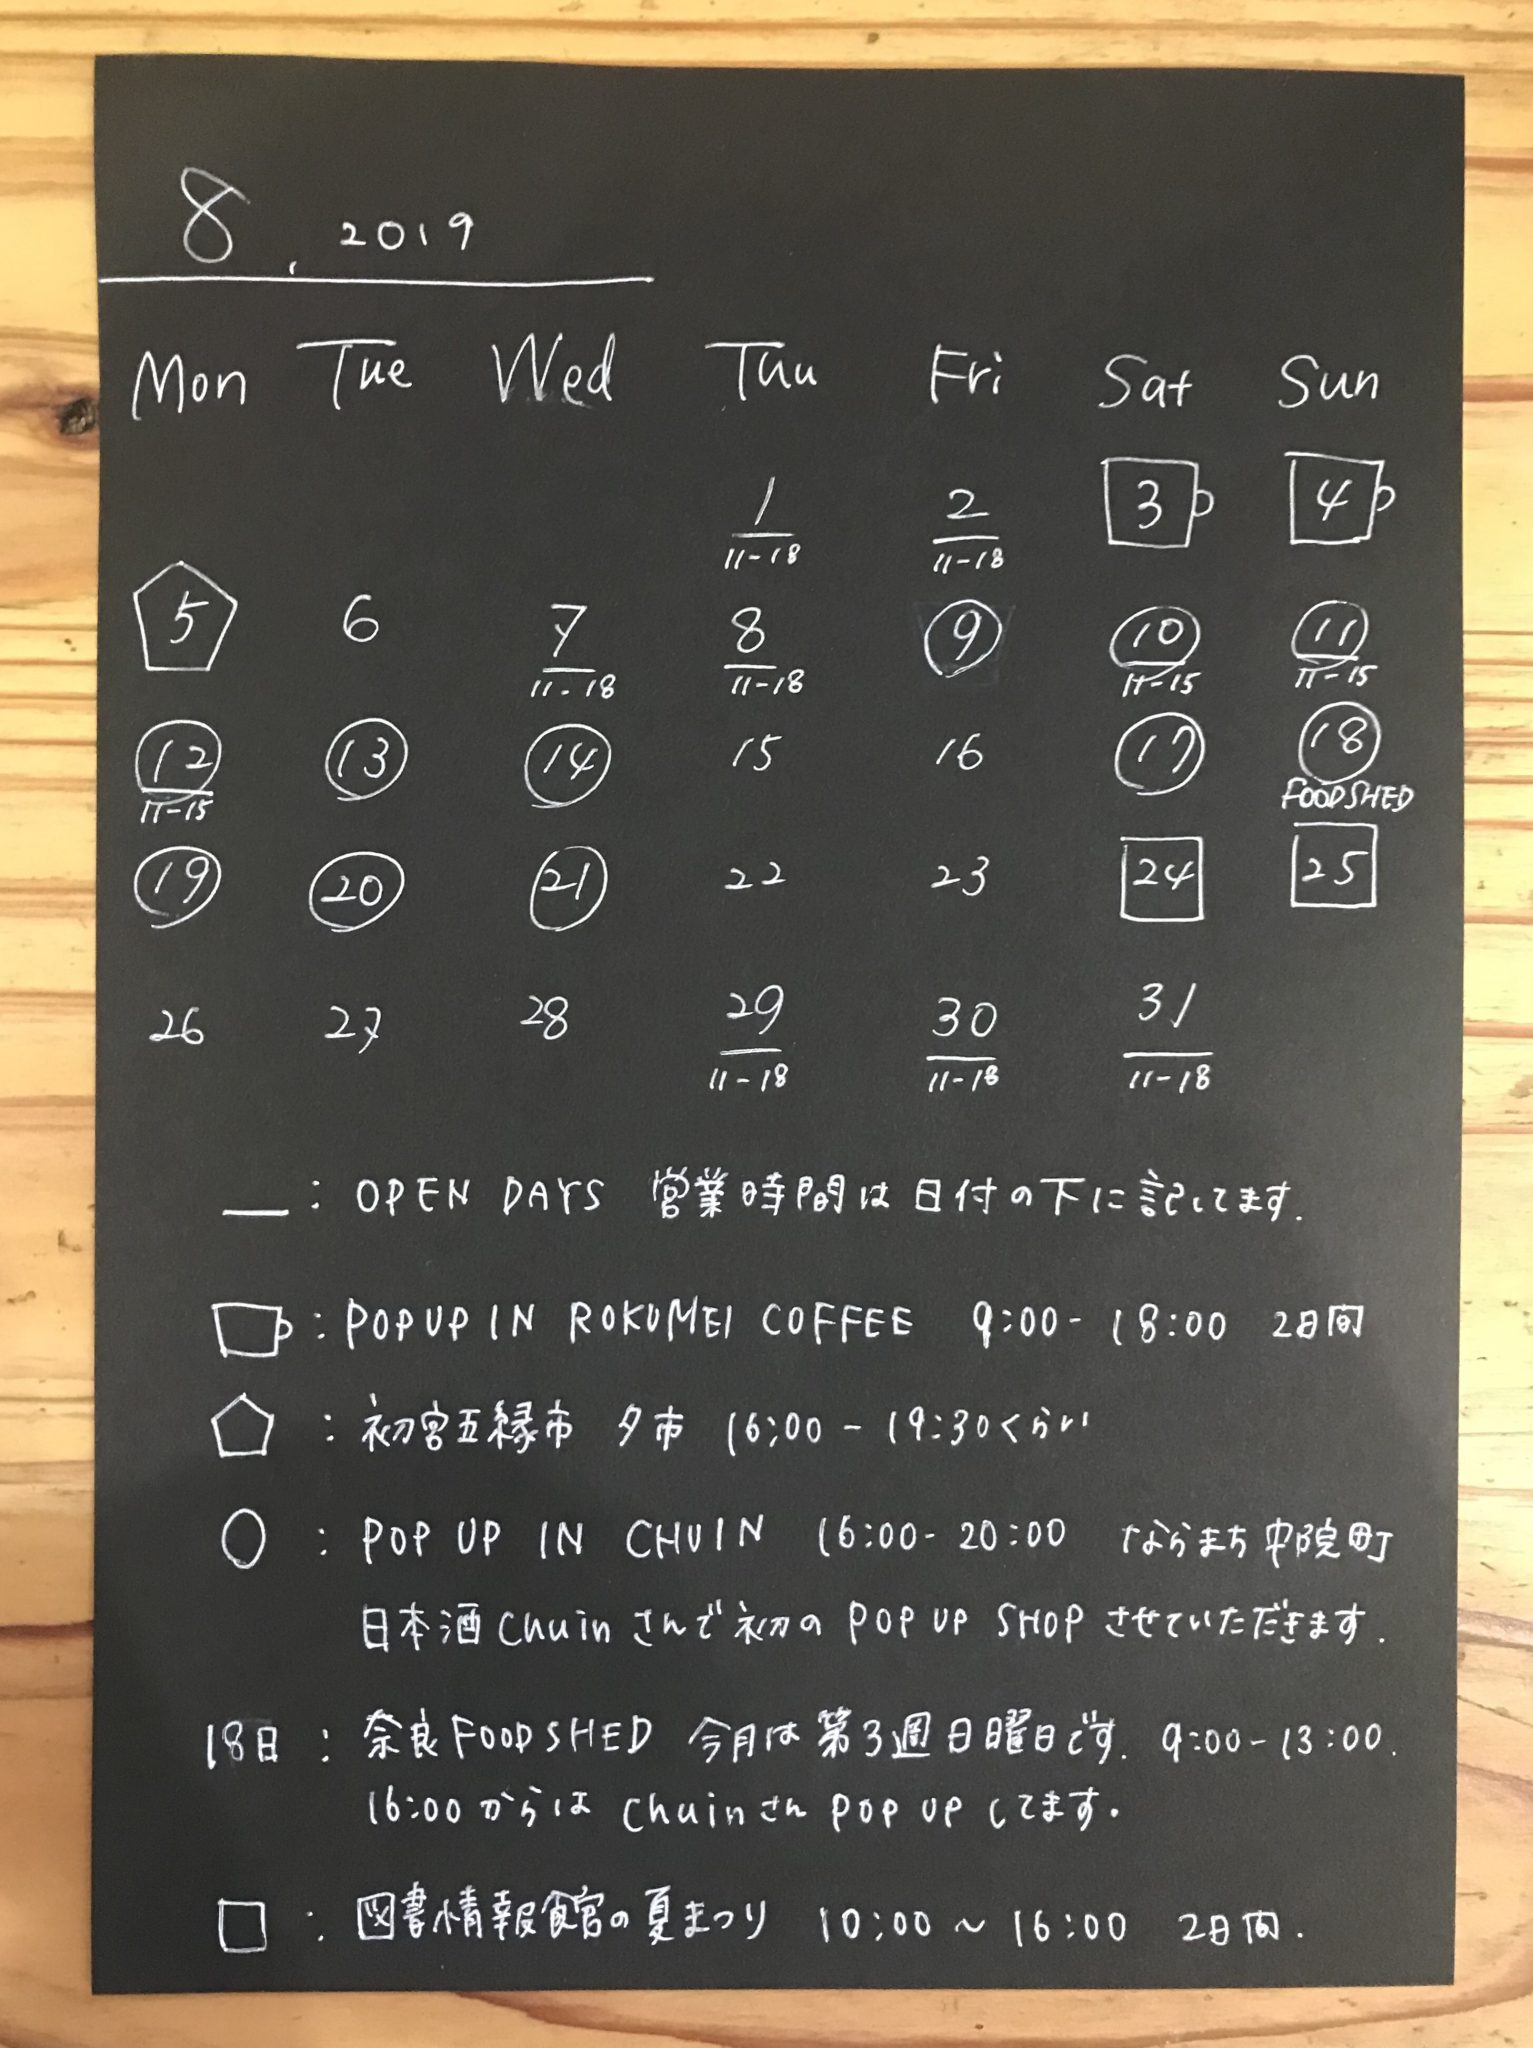 8. 2019
Mon Tue Wed Thu Fri Sat Sun
1 2 3 4
11-18 11-18
5 6 7 8 9 10 11
11-18 11-18 11-15 11-15
12 13 14 15 16 17 18
11-15 FOODSHED
19 20 21 22 23 24 25
26 27 28 29 30 31
11-18 11-18 11-18
： OPEN DAYS 営業時間は日付の下に記してます.
： POPUP IN ROKUMEI COFFEE 9:00-18:00 2日間
： 初宮五縁市 夕市 16:00-19:30くらい
： POP UP IN CHUIN 16:00-20:00 ならまち中院町
日本酒 Chuin さんで初の POP UP SHOP させていただきます.
18日 ： 奈良FOODSHED 今月は第3週日曜日です. 9:00-13:00.
16:00からは Chuinさん POP UP してます.
： 図書情報館の夏まつり 10:00～16:00 2日間.